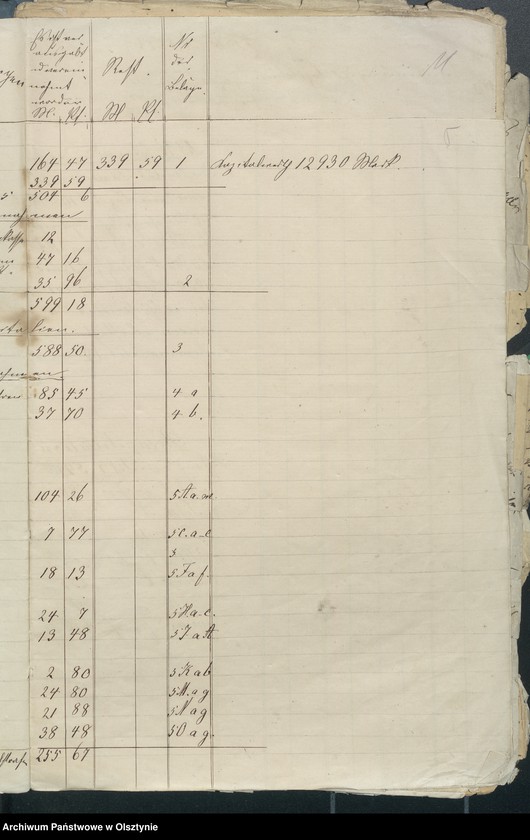 Ist ver
ausgabt
und verein
nahmt
worden
M. Pf.
Rest.
M Pf
Nr
der
Beläge.
11
164 47 339 59 1 12930 Mark.
339 59
504 6
nahmen
12
47 16
35 96 2
599 18
588 50. 3
85 45 4 a
37 70 4 b.
104 26 5 A a-m
7 77 5 C. a-c
5
18 13 5 F a f.
24 7 5 H a-c.
13 48 5 J a
2 80 5 K a b
24 80 5 M. a g
21 88 5 N a g
38 48 5 O a g.
255 67
Archiwum Państwowe w Olsztynie